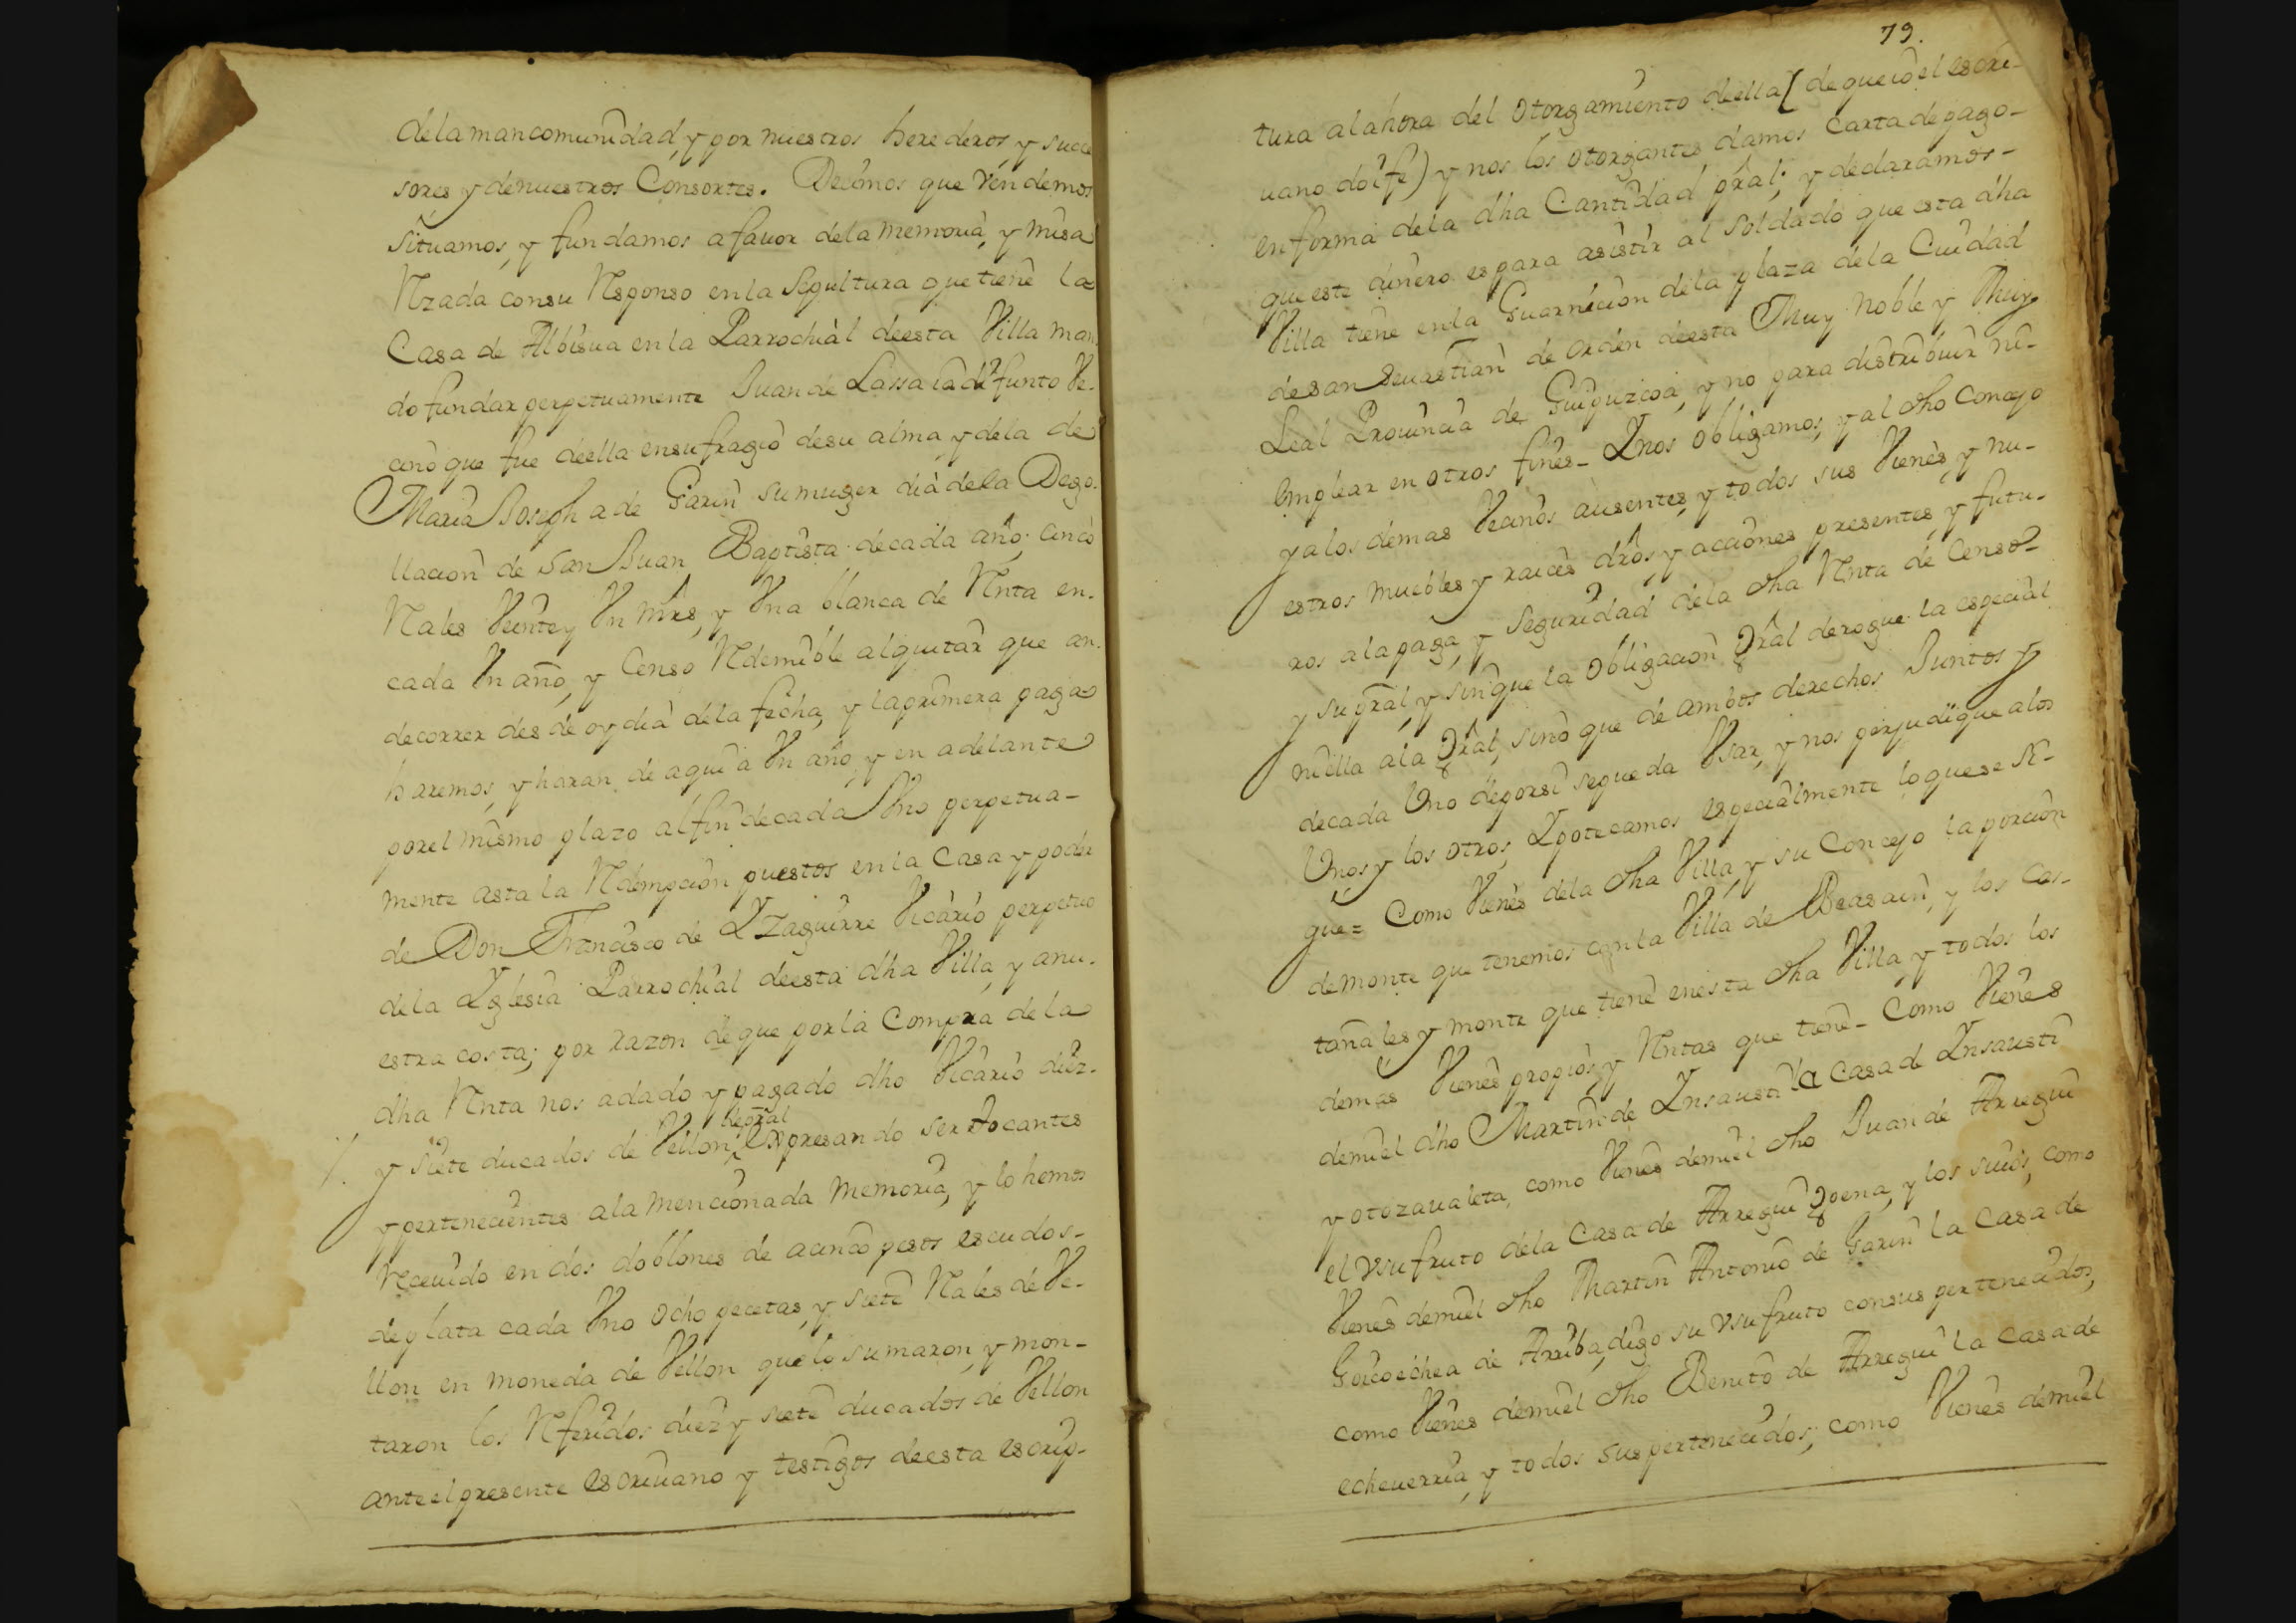 dela mancomunidad, y por nuestros herederos, y succe
sores y de nuestros Consortes. Decimos que Vendemos
Situamos, y fundamos a fauor dela memoria, y misa
Rezada consu Responso enla Sepultura que tiene la
Casa de Albisua en la Parrochial deesta Villa man
do fundar perpetuamente Juan de Lassa ia difunto Ve-
cino que fue deella ensufragio desu alma, y dela de
Maria Josepha de Garin su muger dia dela Dego-
llacion de San Juan Baptista de cada año; cinco
Reales Veinte y Un mrs, y Una blanca de Renta en-
cada Un año, y Censo Redemible alquitar que an
decorrer des de oy dia dela fecha, y laprimera paga
haremos, y haran de aqui a Un año, y en adelante
porel mismo plazo al fin decada Uno perpetua-
mente asta la Redempcion puestos en la Casa y poder
de Don Francisco de Yzaguirre Vicario perpetuo
dela Yglesia Parrochial deesta dha Villa, y anu-
estra costa; por razon de que por la Compra de la
dha Renta nos adado y pagado dho Vicario diez-
y siete ducados de Vellon; Expresando ser tocantes
y pertenecientes ala mencionada memoria, y lo hemos
Receuido en dos doblones de acinco pesos escudos-
de plata cada Uno ocho pecetas, y siete Reales de Ve-
llon en moneda de Vellon que lo sumaron, y mon-
taron los Referidos diez y siete ducados de Vellon
ante el presente escriuano y testigos deesta escrip-
79.
tura alahora del Otorgamiento deella [de que io el escri-
uano doi fe) y nos los otorgantes damos carta depago-
enforma dela dha Cantidad pral; y declaramos-
que este dinero es para asistir al soldado que esta dha
Villa tiene enla Guarnicion dela plaza dela Ciudad
desan Seuastian de orden deesta Muy Noble y Muy
Leal Prouincia de Guipuzcoa, y no para distribuir ni-
Emplear en otros fines- Ynos obligamos, y al dho Concejo
y alos demas Vecinos ausentes, y todos sus Vienes, y nu-
estros muebles y raices dros, y acciones presentes, y futu-
ros alapaga, y Seguridad dela dha Renta de Censo-
y su pral, y sin que la Obligacion Gral derogue la especial
ni ella ala Gral, sino que de ambos derechos Juntos y
decada Uno deporsi sepueda Usar, y nos perjudique alos
Unos y los otros, Ypotecamos especialmente loquese si-
gue= Como Vienes dela dha Villa, y su Concejo la porcion
demonte que tenemos con la Villa de Beasain, y los Cas-
tañales y monte que tiene enesta dha Villa, y todos los
demas Vienes propios, y Rentas que tiene- Como Vienes
demi el dho Martin de Ynsausti la Casa de Ynsausti
y otozaualeta, como Vienes demi el dho Juan de Arregui
el Vsufruto dela Casa de Arregui Goena, y los suios, como
Vienes demi el dho Martin Antonio de Garin la Casa de
Goicoechea de Arriba, digo su Vsufruto consus pertenecidos,
como Vienes demi el dho Benito de Arregui la Casa de
echeuerria, y todos sus pertenecidos; como Vienes demi el